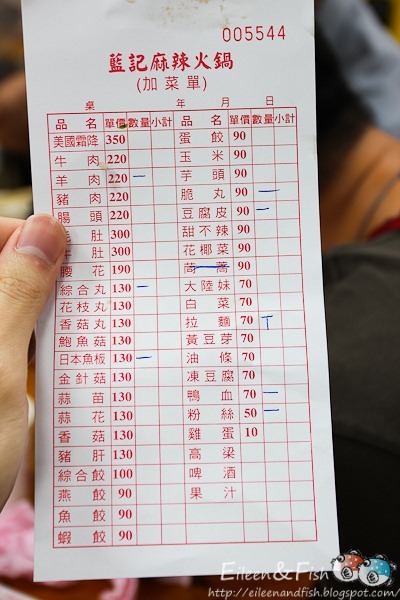 005544
藍記麻辣火鍋
(加菜單)
桌 年 月 日
品名 單價 數量 小計 品名 單價 數量 小計
美國霜降 350 蛋餃 90
牛肉 220 玉米 90
羊肉 220 一 芋頭 90
豬肉 220 脆丸 90 一
腸頭 220 豆腐皮 90 一
肚 300 甜不辣 90
牛肚 300 花椰菜 90
腰花 190 茼蒿 90
綜合丸 130 一 大陸妹 70
花枝丸 130 白菜 70
香菇丸 130 拉麵 70 T
鮑魚菇 130 黃豆芽 70
日本魚板 130 一 油條 70
金針菇 130 凍豆腐 70
蒜苗 130 鴨血 70 一
蒜花 130 粉絲 50 一
香菇 130 雞蛋 10
豬肝 130 高梁
綜合餃 100 啤酒
燕餃 90 果汁
魚餃 90
蝦餃 90
Eileen&Fish
http://eileenandfish.blogspot.com/